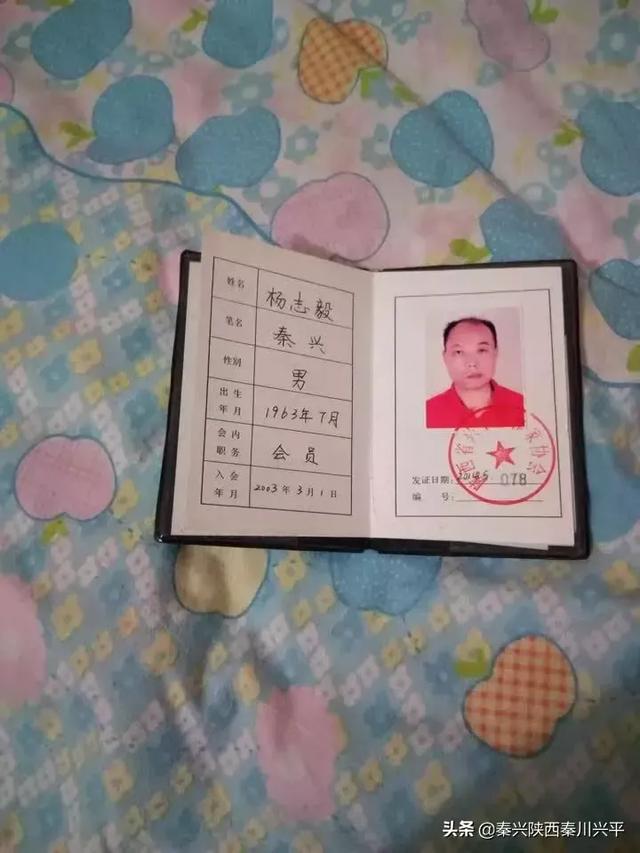 姓名 杨志毅
笔名 秦兴
性别 男
出生年月 1963年7月
会内职务 会员
入会年月 2003年3月1日
家协会
发证日期:
编号:
078
头条 @秦兴陕西秦川兴平